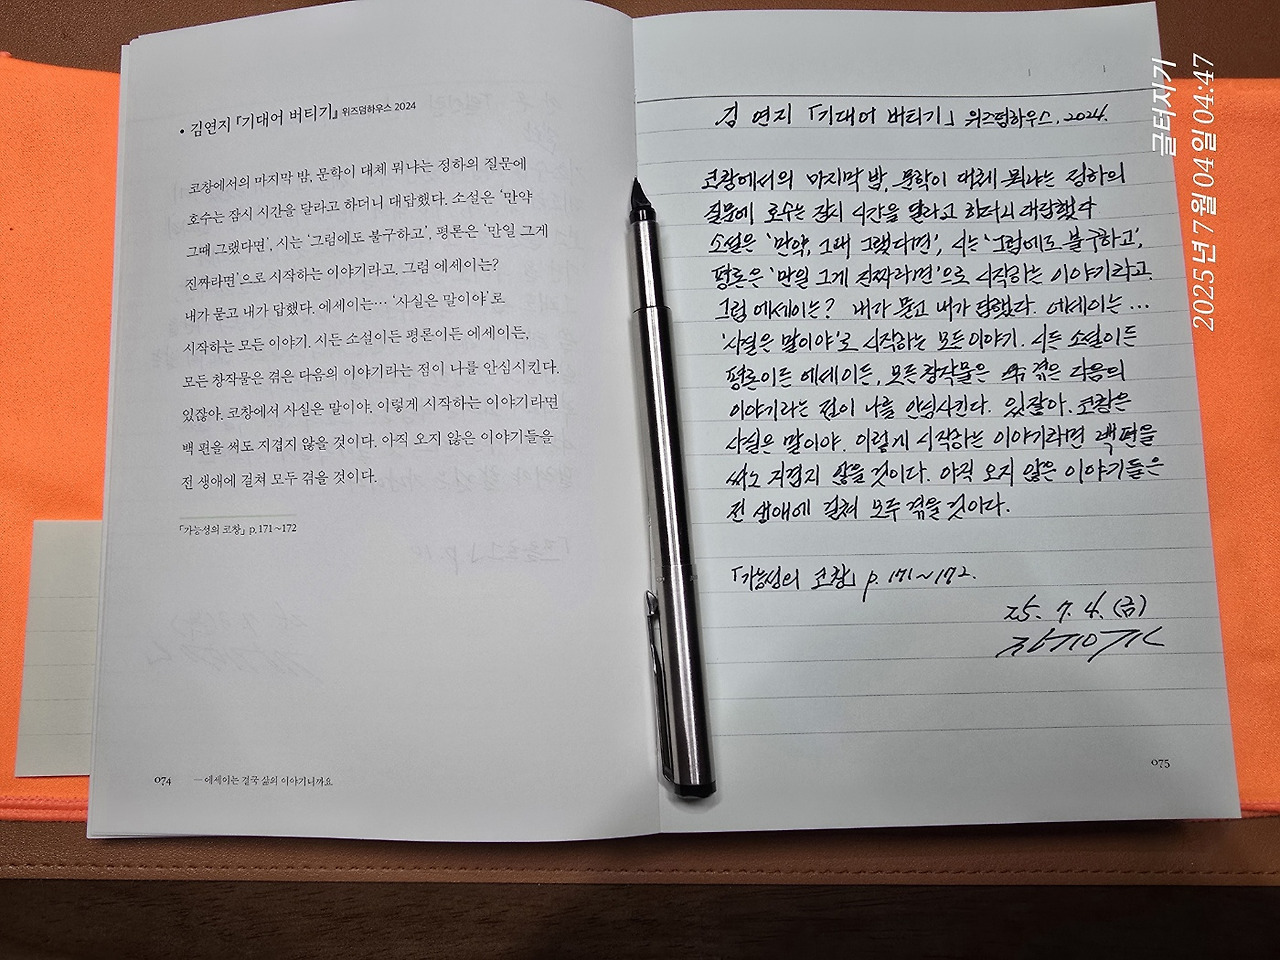 • 김연지 「기대어 버티기」 위즈덤하우스 2024
코창에서의 마지막 밤, 문학이 대체 뭐냐는 정하의 질문에
호수는 잠시 시간을 달라고 하더니 대답했다. 소설은 ‘만약
그때 그랬다면’, 시는 ‘그럼에도 불구하고’, 평론은 ‘만일 그게
진짜라면’으로 시작하는 이야기라고. 그럼 에세이는?
내가 묻고 내가 답했다. 에세이는… ‘사실은 말이야’로
시작하는 모든 이야기. 시든 소설이든 평론이든 에세이든,
모든 창작물은 겪은 다음의 이야기라는 점이 나를 안심시킨다.
있잖아. 코창에서 사실은 말이야. 이렇게 시작하는 이야기라면
백 편을 써도 지겹지 않을 것이다. 아직 오지 않은 이야기들을
전 생애에 걸쳐 모두 겪을 것이다.
「가능성의 코창」 p.171~172
074
— 에세이는 결국 삶의 이야기니까요
김 연지 「기대어 버티기」 위즈덤하우스, 2024.
코창에서의 마지막 밤, 문학이 대체 뭐냐는 정하의
질문에 호수는 잠시 시간을 달라고 하더니 대답했다
소설은 ‘만약, 그때 그랬다면’, 시는 ‘그럼에도 불구하고’,
평론은 ‘만일 그게 진짜라면’으로 시작하는 이야기라고.
그럼 에세이는? 내가 묻고 내가 답했다. 에세이는 …
‘사실은 말이야’로 시작하는 모든 이야기. 시든 소설이든
평론이든 에세이든, 모든 창작물은 겪은 다음의
이야기라는 점이 나를 안심시킨다. 있잖아. 코창은
사실은 말이야. 이렇게 시작하는 이야기라면 백편을
써도 지겹지 않을 것이다. 아직 오지 않은 이야기들은
전 생애에 걸쳐 모두 겪을 것이다.
「가능성의 코창」 p. 171~172.
25. 7. 4. (금)
075
글터지기
2025년 7월 04일 04:47